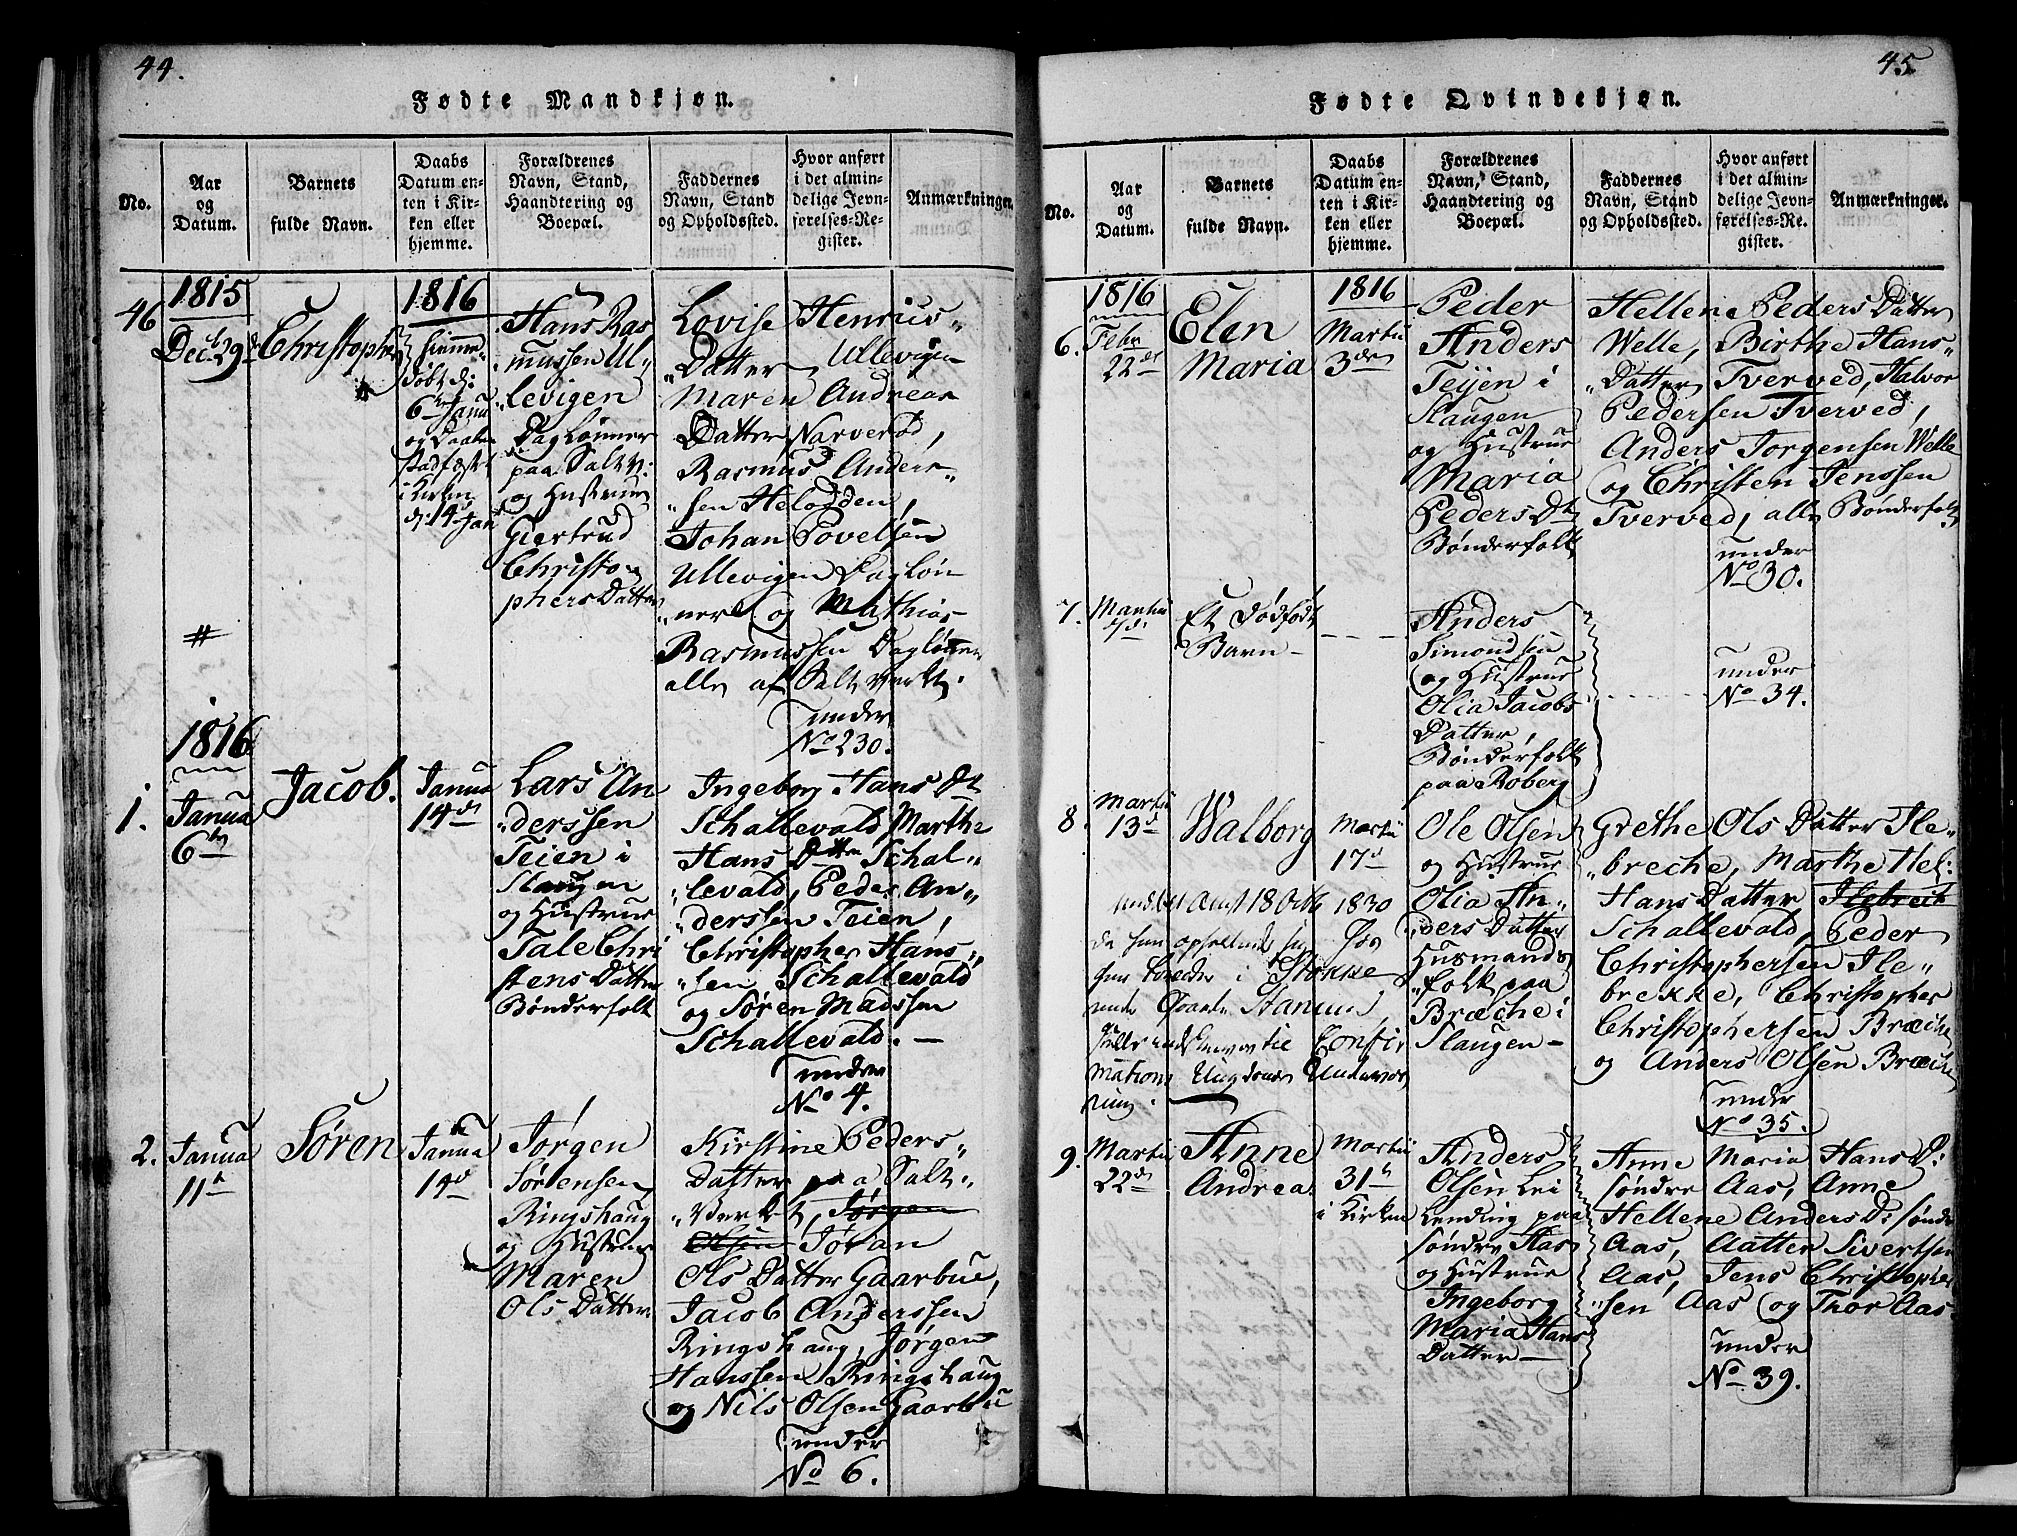 44.
Fødte Mandkjøn.
No.
Aar
og
Datum.
Barnets
fulde Navn.
Daabs
Datum en-
ten i Kir-
ken eller
hjemme.
Forældrenes
Navn, Stand,
Haandtering og
Boepæl.
Faddernes
Navn, Stand
og Opholdssted.
Hvor anført
i det almin-
delige Jevn-
førelses-Re-
gister.
Anmærkninger.
46
1815
Decb 29de
Christopher
1816
hjemme-
døbt d:
6te Janu
og Daaben
stadfæstet
i Kirken
d: 14d Janu
Hans Ras
mussen Ul-
levigen
Daglønner
paa Saltv:
og Hustrue
Giertrud
Christo-
phers Datter
Lovise Henrics-
Datter, Ullevigen
Maren Andreas
Datter Narverød,
Rasmus Anders-
sen Helodden,
Johan Povelsen
Ullevigen Dagløn
ner og Mathias
Rasmussen Dagløner
alle af Saltverket.
under
No 230.
#
1816
1.
Janua
6te
Jacob.
Janua
14de
Lars An
derssen
Teien i
Slaugen
og Hustrue
Tale Chri
stens Datter
Bønderfolk
Ingeborg Hans Dt
Schallevald, Marthe
Hans Dtter Schal-
levald, Peder An-
derssen Teien,
Christopher Hans-
sen Schallevald
og Søren Madssen
Schallevald. -
under
No 4.
2.
Janua
11te
Søren
Janua
14d
Jørgen
Sørensen
Ringshaug
og Hustrue
Maren
Ols Datter
Kirstine Peders-
Datter paa Salt-
Verket, Jørgen
Olsen Jøran
Ols Datter Gaarbue,
Jacob Anderssen
Ringshaug, Jørgen
Hanssen Ringshaug
og Nils Olsen Gaarbue
under
No 6.
45
Fødte Qvindekjøn.
No.
Aar
og
Datum.
Barnets
fulde Navn.
Daabs
Datum en-
ten i Kir-
ken eller
hjemme.
Forældrenes
Navn, Stand,
Haandtering og
Boepæl.
Faddernes
Navn, Stand
og Opholdssted.
Hvor anført
i det almin-
delige Jevn-
førelses-Re-
gister.
Anmærkninger.
1816
6.
Febr
22de
Elen
Maria
1816
Martii
3den
Peder
Anders
Teijen i
Slaugen
og Hustrue
Maria
Peders Dt
Bønderfolk
Hellene Peders Datter
Welle, Birthe Hans-
Datter Tverved, Halvor
Pedersen Tverved,
Anders Jørgensen Welle
og Christen Jenssen
Tverved, alle Bønderfolk
under
No 30.
7.
Martii
7de
Et Dødfødt
Barn -
Anders
Simondsen
og Hustrue
Olia Jacobs
Datter,
Bønderfolk
paa Roberg
under
No 34.
8.
Martii
13d
Walborg
Martii
17d
Ole Olsen
og Hustrue
Olia An-
ders Datter
Husmands
folk paa
Bræche i
Slaugen -
Grethe Ols Datter Ile-
breche, Marthe Hel:
Hans Datter Ilebreik
Schallevald, Peder
Christophersen Ile-
brekke, Christopher
Christophersen Bræche
og Anders Olsen Bræche
18 Octb 1830
da hun opholdende sig
i Stokke
til Confir
mations Ungdoms Underviis
ning.
under
No 35.
9.
Martii
22de
Anne
Andrea
Martii
31te
i Kirken
Anders
Olsen Lei
lending paa
søndre Aas
og Hustrue
Ingeborg
Maria Hans
Datter -
Anne Maria Hans D:
søndre Aas, Anne
Hellene Anders D: søndr
Aas, Aatter Sivertsen
Aas, Jens Christopher
sen Aas og Thor Aas.
under
No 39.